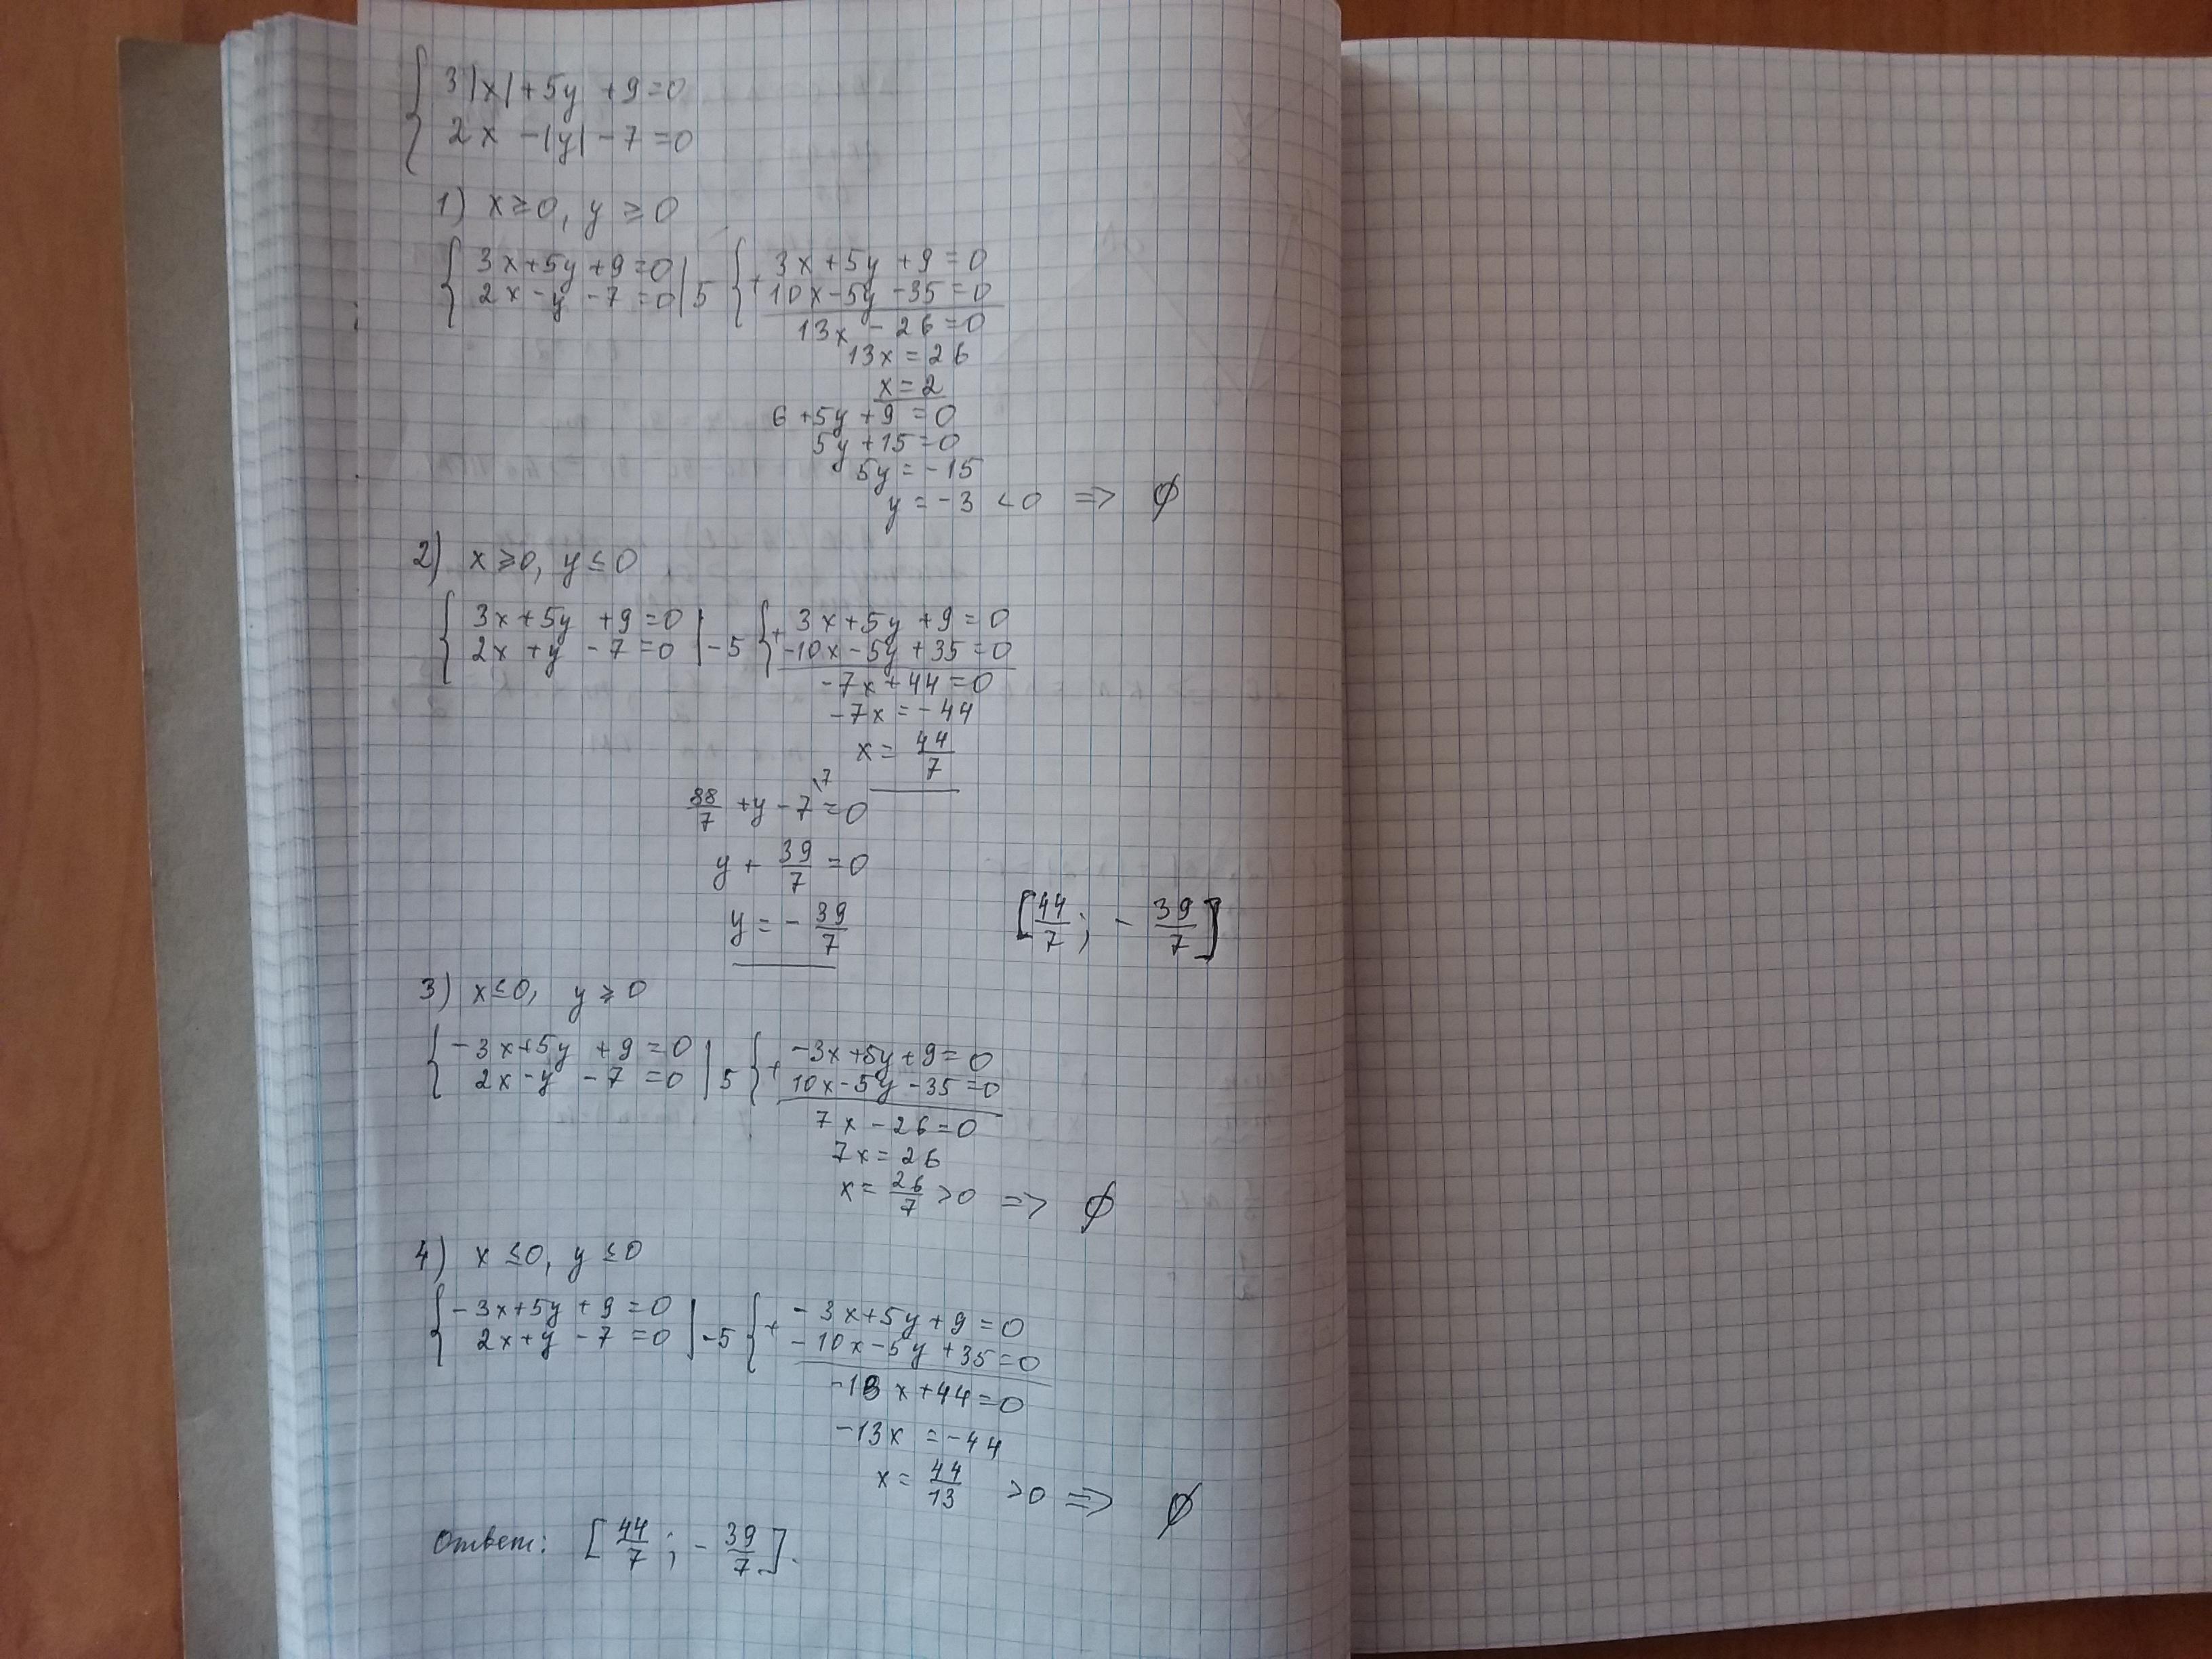 3|x|+5y+9=0
2x-|y|-7=0
1) x≥0, y≥0
3x+5y+9=0
2x-y-7=0|5
+ 3x+5y+9=0
10x-5y-35=0
13x-26=0
13x=26
x=2
6+5y+9=0
5y+15=0
5y=-15
y=-3<0 => ∅
2) x≥0, y≤0
3x+5y+9=0
2x+y-7=0|-5
+ 3x+5y+9=0
-10x-5y+35=0
-7x+44=0
-7x=-44
x=44/7
88/7+y-7\7=0
y+39/7=0
y=-39/7
[44/7; -39/7]
3) x≤0, y≥0
-3x+5y+9=0
2x-y-7=0|5
+ -3x+5y+9=0
10x-5y-35=0
7x-26=0
7x=26
x=26/7>0 => ∅
4) x≤0, y≤0
-3x+5y+9=0
2x+y-7=0|-5
+ -3x+5y+9=0
-10x-5y+35=0
-13x+44=0
-13x=-44
x=44/13 >0 => ∅
Ответ: [44/7; -39/7].